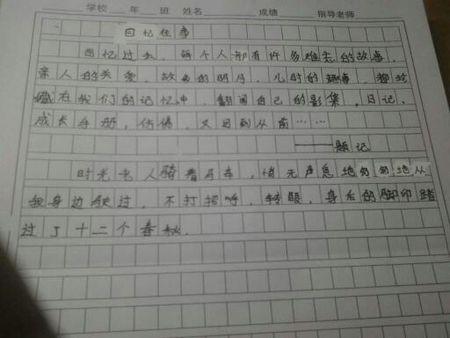 学校 年 班 姓名 成绩 指导老师
回忆往事
回忆过去，每个人都有许多难忘的故事，
亲人的关爱，故乡的明月，儿时的趣事，都珍
藏在我们的记忆中，翻阅自己的影集，日记，
成长手册，仿佛，又回到从前……
——题记
时光老人骑着单车，悄无声息地匆匆地从
我身边驶过，不打招呼，转眼，身后的脚印踏
过了十二个春秋.